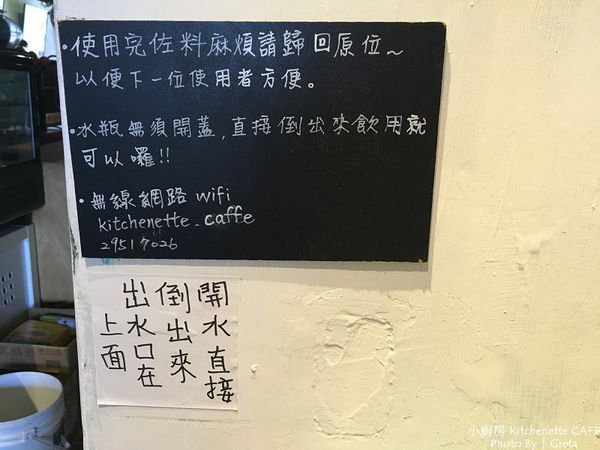 •使用完佐料麻煩請歸回原位～
以便下一位使用者方便。
•水瓶無須開蓋,直接倒出來飲用就
可以囉!!
•無線網路 wifi
kitchenette_caffe
29517026
開水直接
倒出來
出水口在
上面
小廚房 Kitchenette CAFE
Photo By | Greta